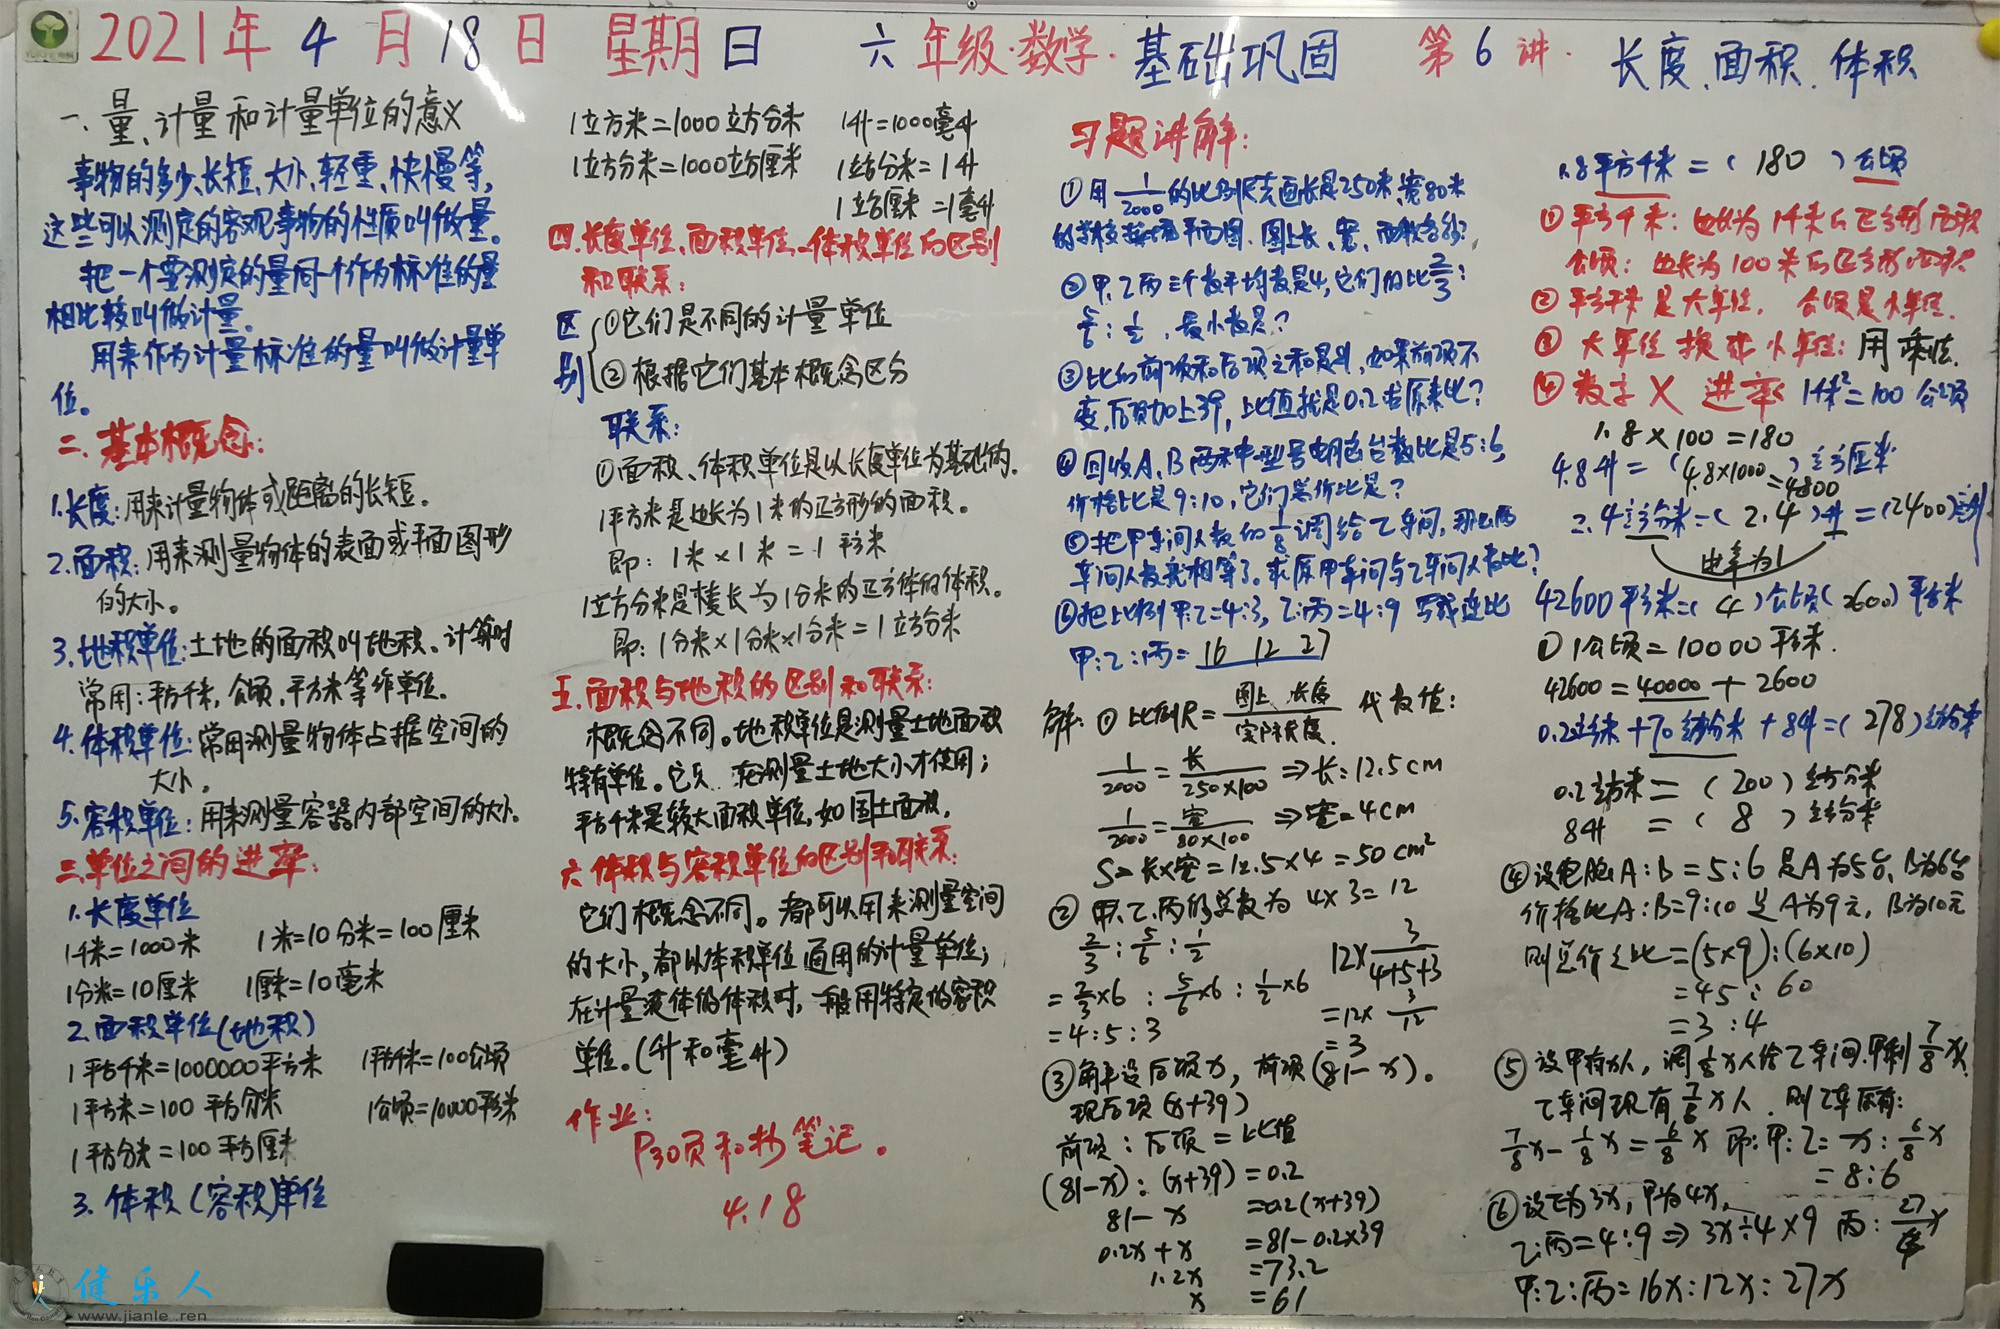 2021年4月18日 星期日 六年级·数学·基础巩固 第6讲·长度、面积、体积
一、量、计量和计量单位的意义
事物的多少、长短、大小、轻重、快慢等,
这些可以测定的客观事物的性质叫做量。
把一个要测定的量同一个作为标准的量
相比较叫做计量。
用来作为计量标准的量叫做计量单
位。
二、基本概念:
1.长度:用来计量物体或距离的长短。
2.面积:用来测量物体的表面或平面图形
的大小。
3.地积单位:土地的面积叫地积。计算时
常用:平方千米,公顷,平方米等作单位。
4.体积单位:常用测量物体占据空间的
大小。
5.容积单位:用来测量容器内部空间的大小。
三.单位之间的进率:
1.长度单位
1千米=1000米 1米=10分米=100厘米
1分米=10厘米 1厘米=10毫米
2.面积单位(地积)
1平方千米=1000000平方米 1平方千米=100公顷
1平方米=100平方分米 1公顷=10000平方米
1平方分米=100平方厘米
3.体积(容积)单位
1立方米=1000立方分米 1升=1000毫升
1立方分米=1000立方厘米 1立方分米=1升
1立方厘米=1毫升
四.长度单位、面积单位、体积单位的区别
和联系:
区别
①它们是不同的计量单位
②根据它们基本概念区分
联系:
①面积、体积单位是以长度单位为基础的.
1平方米是边长为1米的正方形的面积。
即:1米×1米=1平方米
1立方分米是棱长为1分米的正方体的体积。
即:1分米×1分米×1分米=1立方分米
五.面积与地积的区别和联系:
概念不同。地积单位是测量土地面积
特有单位。它只在测量土地大小才使用;
平方千米是较大面积单位,如国土面积.
六 体积与容积单位的区别和联系:
它们概念不同。都可以用来测量空间
的大小,都以体积单位通用的计量单位;
在计量液体的体积时,一般用特定的容积
单位.(升和毫升)
作业:
P30页和抄笔记。
4.18
习题讲解:
①用1/2000的比例尺去画长是250米,宽80米
的学校平面图.图上长、宽、面积各多少?
②甲.乙.丙三个数平均数是4,它们的比2/3:
5/6:1/2,最小数是?
③比的前项和后项之和是81,如果前项不
变,后项加上39,比值就是0.2求原来比?
④回收A、B两种型号电脑台数比是5:6,
价格比是9:10,它们总价比是?
⑤把甲车间人数的1/8调给乙车间,那么两
车间人数就相等了.求原甲车间与乙车间人数比?
⑥把比例甲:乙=4:3,乙:丙=4:9写成连比
甲:乙:丙=16 12 27
解:①比例尺=图上长度/实际长度 代数值:
1/2000=长/250×100⇒长:12.5cm
1/2000=宽/80×100⇒宽=4cm
S=长×宽=12.5×4=50cm²
②甲.乙.丙的总数为4×3=12
2/3:5/6:1/2 12×3/4+5+3
=2/3×6:5/6×6:1/2×6 =12×3/12
=4:5:3 =3
③解设后项x,前项(81-x)。
现后项(x+39)
前项:后项=比值
(81-x):(x+39)=0.2
81-x =0.2(x+39)
0.2x+x =81-0.2×39
1.2x =73.2
x =61
1.8平方千米=(180)公顷
①平方千米:边长为1千米的正方形面积
公顷:边长为100米的正方形面积
②平方千米是大单位,公顷是小单位.
③大单位换成小单位:用乘法.
④数字×进率 1千米²=100公顷
1.8×100=180
4.8升=(4.8×1000=4800)立方厘米
2.4立方分米=(2.4)升=(2400)毫升
进率为1
42600平方米=(4)公顷(2600)平方米
①1公顷=10000平方米.
42600=40000+2600
0.2立方米+70立方分米+8升=(278)立方分米
0.2立方米=(200)立方分米
8升=(8)立方分米
④设电脑A:B=5:6是A为5台、B为6台
价格比A:B=9:10是A为9元,B为10元
则总价之比=(5×9):(6×10)
=45:60
=3:4
⑤设甲有x人,调1/8x人给乙车间.甲剩7/8x.
乙车间现有7/8x人.则乙车原有:
7/8x-1/8x=6/8x 即:甲:乙=x:6/8x
=8:6
⑥设乙为3x,甲为4x,
乙:丙=4:9⇒3x÷4×9 丙:27/4x
甲:乙:丙=16x:12x:27x
健乐人
www.jianle.ren